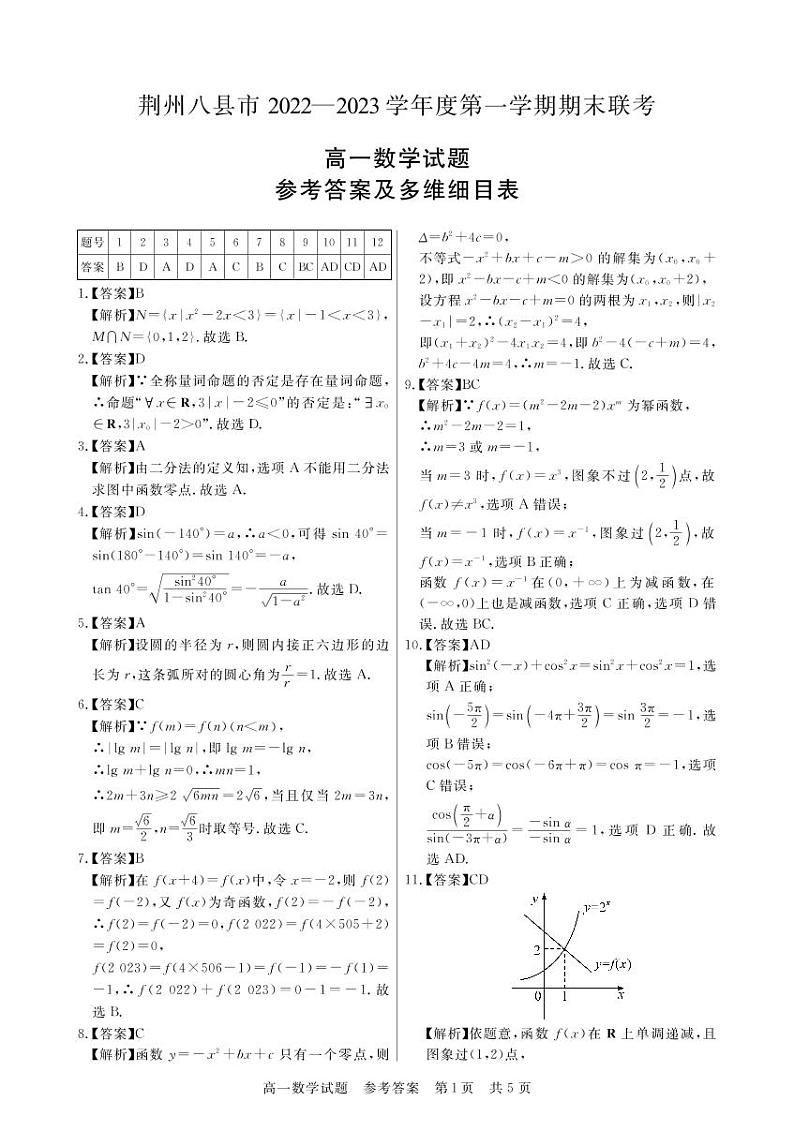 荆州八县市 2022—2023 学年度第一学期期末联考
高一数学试题
参考答案及多维细目表
题号 1 2 3 4 5 6 7 8 9 10 11 12
答案 B D A D A C B C BC AD CD AD
1.【答案】B
【解析】N={x|x²-2x<3}={x|-1<x<3},
M∩N={0,1,2}.故选 B.
2.【答案】D
【解析】∵全称量词命题的否定是存在量词命题,
∴命题“∀x∈R,3|x|-2≤0”的否定是:“∃x₀
∈R,3|x₀|-2>0”.故选 D.
3.【答案】A
【解析】由二分法的定义知,选项 A 不能用二分法
求图中函数零点.故选 A.
4.【答案】D
【解析】sin(-140°)=a,∴a<0,可得 sin 40°=
sin(180°-140°)=sin 140°=-a,
tan 40°=√(sin²40°/(1-sin²40°))=-a/√(1-a²).故选 D.
5.【答案】A
【解析】设圆的半径为 r,则圆内接正六边形的边
长为 r,这条弧所对的圆心角为 r/r=1.故选 A.
6.【答案】C
【解析】∵f(m)=f(n)(n<m),
∴|lg m|=|lg n|,即 lg m=-lg n,
∴lg m+lg n=0,∴mn=1,
∴2m+3n≥2√(6mn)=2√6,当且仅当 2m=3n,
即 m=√6/2,n=√6/3时取等号.故选 C.
7.【答案】B
【解析】在 f(x+4)=f(x)中,令 x=-2,则 f(2)
=f(-2),又 f(x)为奇函数,f(2)=-f(-2),
∴f(2)=f(-2)=0,f(2 022)=f(4×505+2)
=f(2)=0,
f(2 023)=f(4×506-1)=f(-1)=-f(1)=
-1,∴f(2 022)+f(2 023)=0-1=-1.故
选 B.
8.【答案】C
【解析】函数 y=-x²+bx+c 只有一个零点,则
Δ=b²+4c=0,
不等式-x²+bx+c-m>0 的解集为(x₀,x₀+
2),即 x²-bx-c+m<0 的解集为(x₀,x₀+2),
设方程 x²-bx-c+m=0 的两根为 x₁,x₂,则|x₂
-x₁|=2,∴(x₂-x₁)²=4,
即(x₁+x₂)²-4x₁x₂=4,即 b²-4(-c+m)=4,
b²+4c-4m=4,∴m=-1.故选 C.
9.【答案】BC
【解析】∵f(x)=(m²-2m-2)xᵐ 为幂函数,
∴m²-2m-2=1,
∴m=3 或 m=-1,
当 m=3 时,f(x)=x³,图象不过(2,1/2)点,故
f(x)≠x³,选项 A 错误;
当 m=-1 时,f(x)=x⁻¹,图象过(2,1/2),故
f(x)=x⁻¹,选项 B 正确;
函数 f(x)=x⁻¹在(0,+∞)上为减函数,在
(-∞,0)上也是减函数,选项 C 正确,选项 D 错
误.故选 BC.
10.【答案】AD
【解析】sin²(-x)+cos²x=sin²x+cos²x=1,选
项 A 正确;
sin(-5π/2)=sin(-4π+3π/2)=sin 3π/2=-1,选
项 B 错误;
cos(-5π)=cos(-6π+π)=cos π=-1,选项
C 错误;
cos(π/2+α)/sin(-3π+α)=-sin α/-sin α=1,选项 D 正确.故
选 AD.
11.【答案】CD
y
y=2ˣ
2
y=f(x)
0 1 x
【解析】依题意,函数 f(x)在 R 上单调递减,且
图象过(1,2)点,
高一数学试题 参考答案 第 1 页 共 5 页